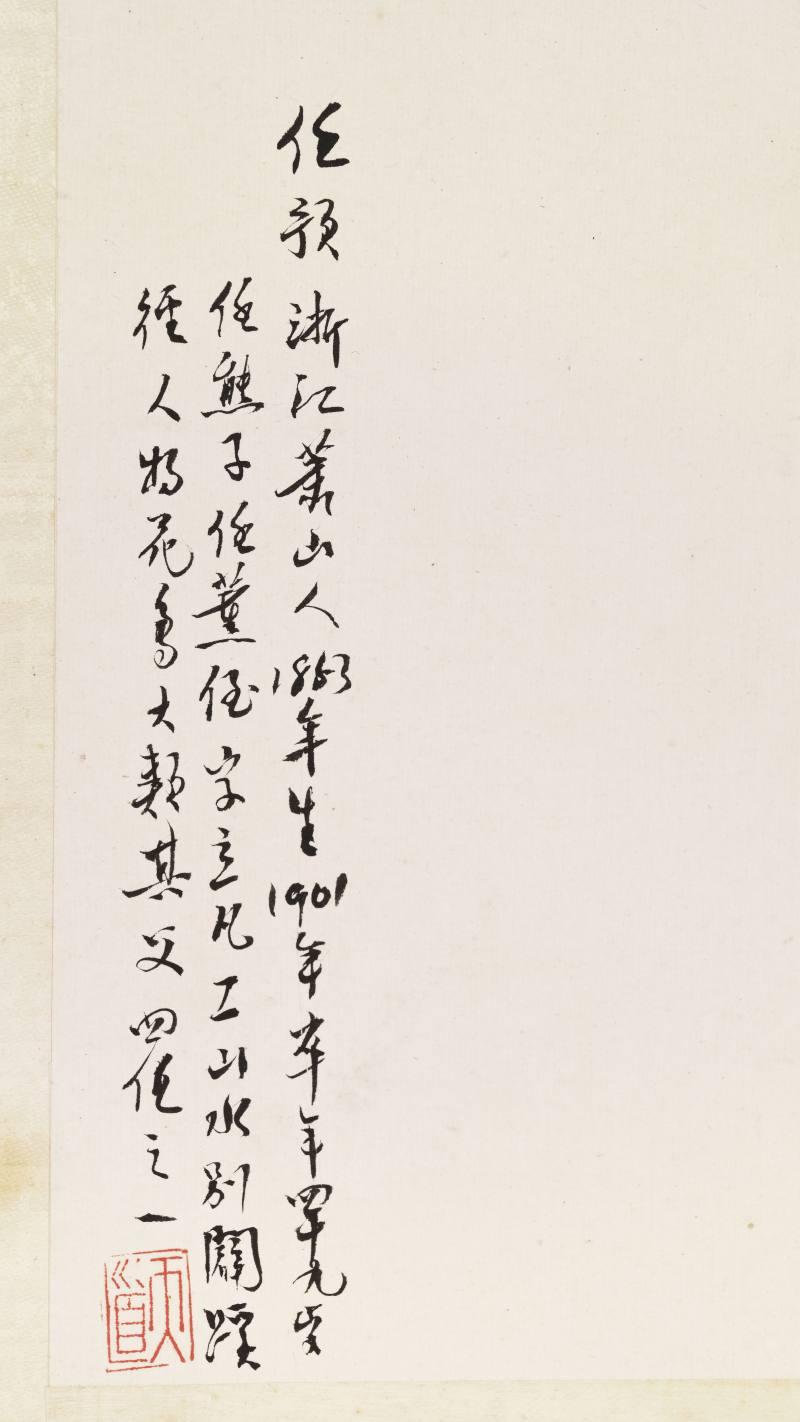 任預 浙江蕭山人1853年生1901年卒年四十九歲
任熊子任薰侄字立凡工山水別闢蹊
徑人物花鳥大類其父四任之一